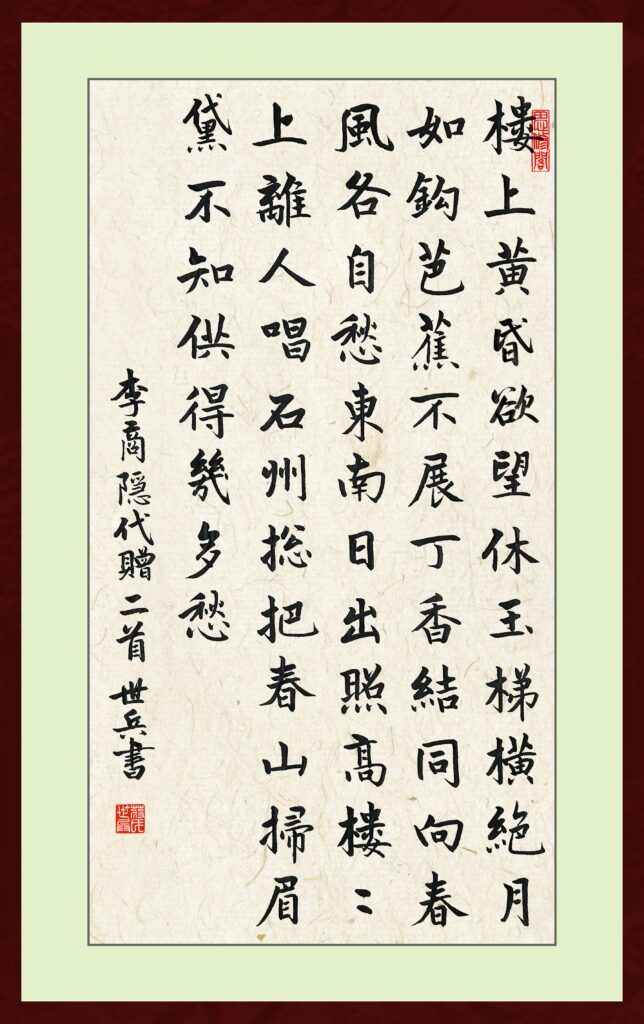 樓上黄昏欲望休玉梯橫絶月
如鈎芭蕉不展丁香結同向春
風各自愁東南日出照髙樓〻
上離人唱石州捴把春山掃眉
黛不知供得幾多愁
李商隐代贈二首 世兵書